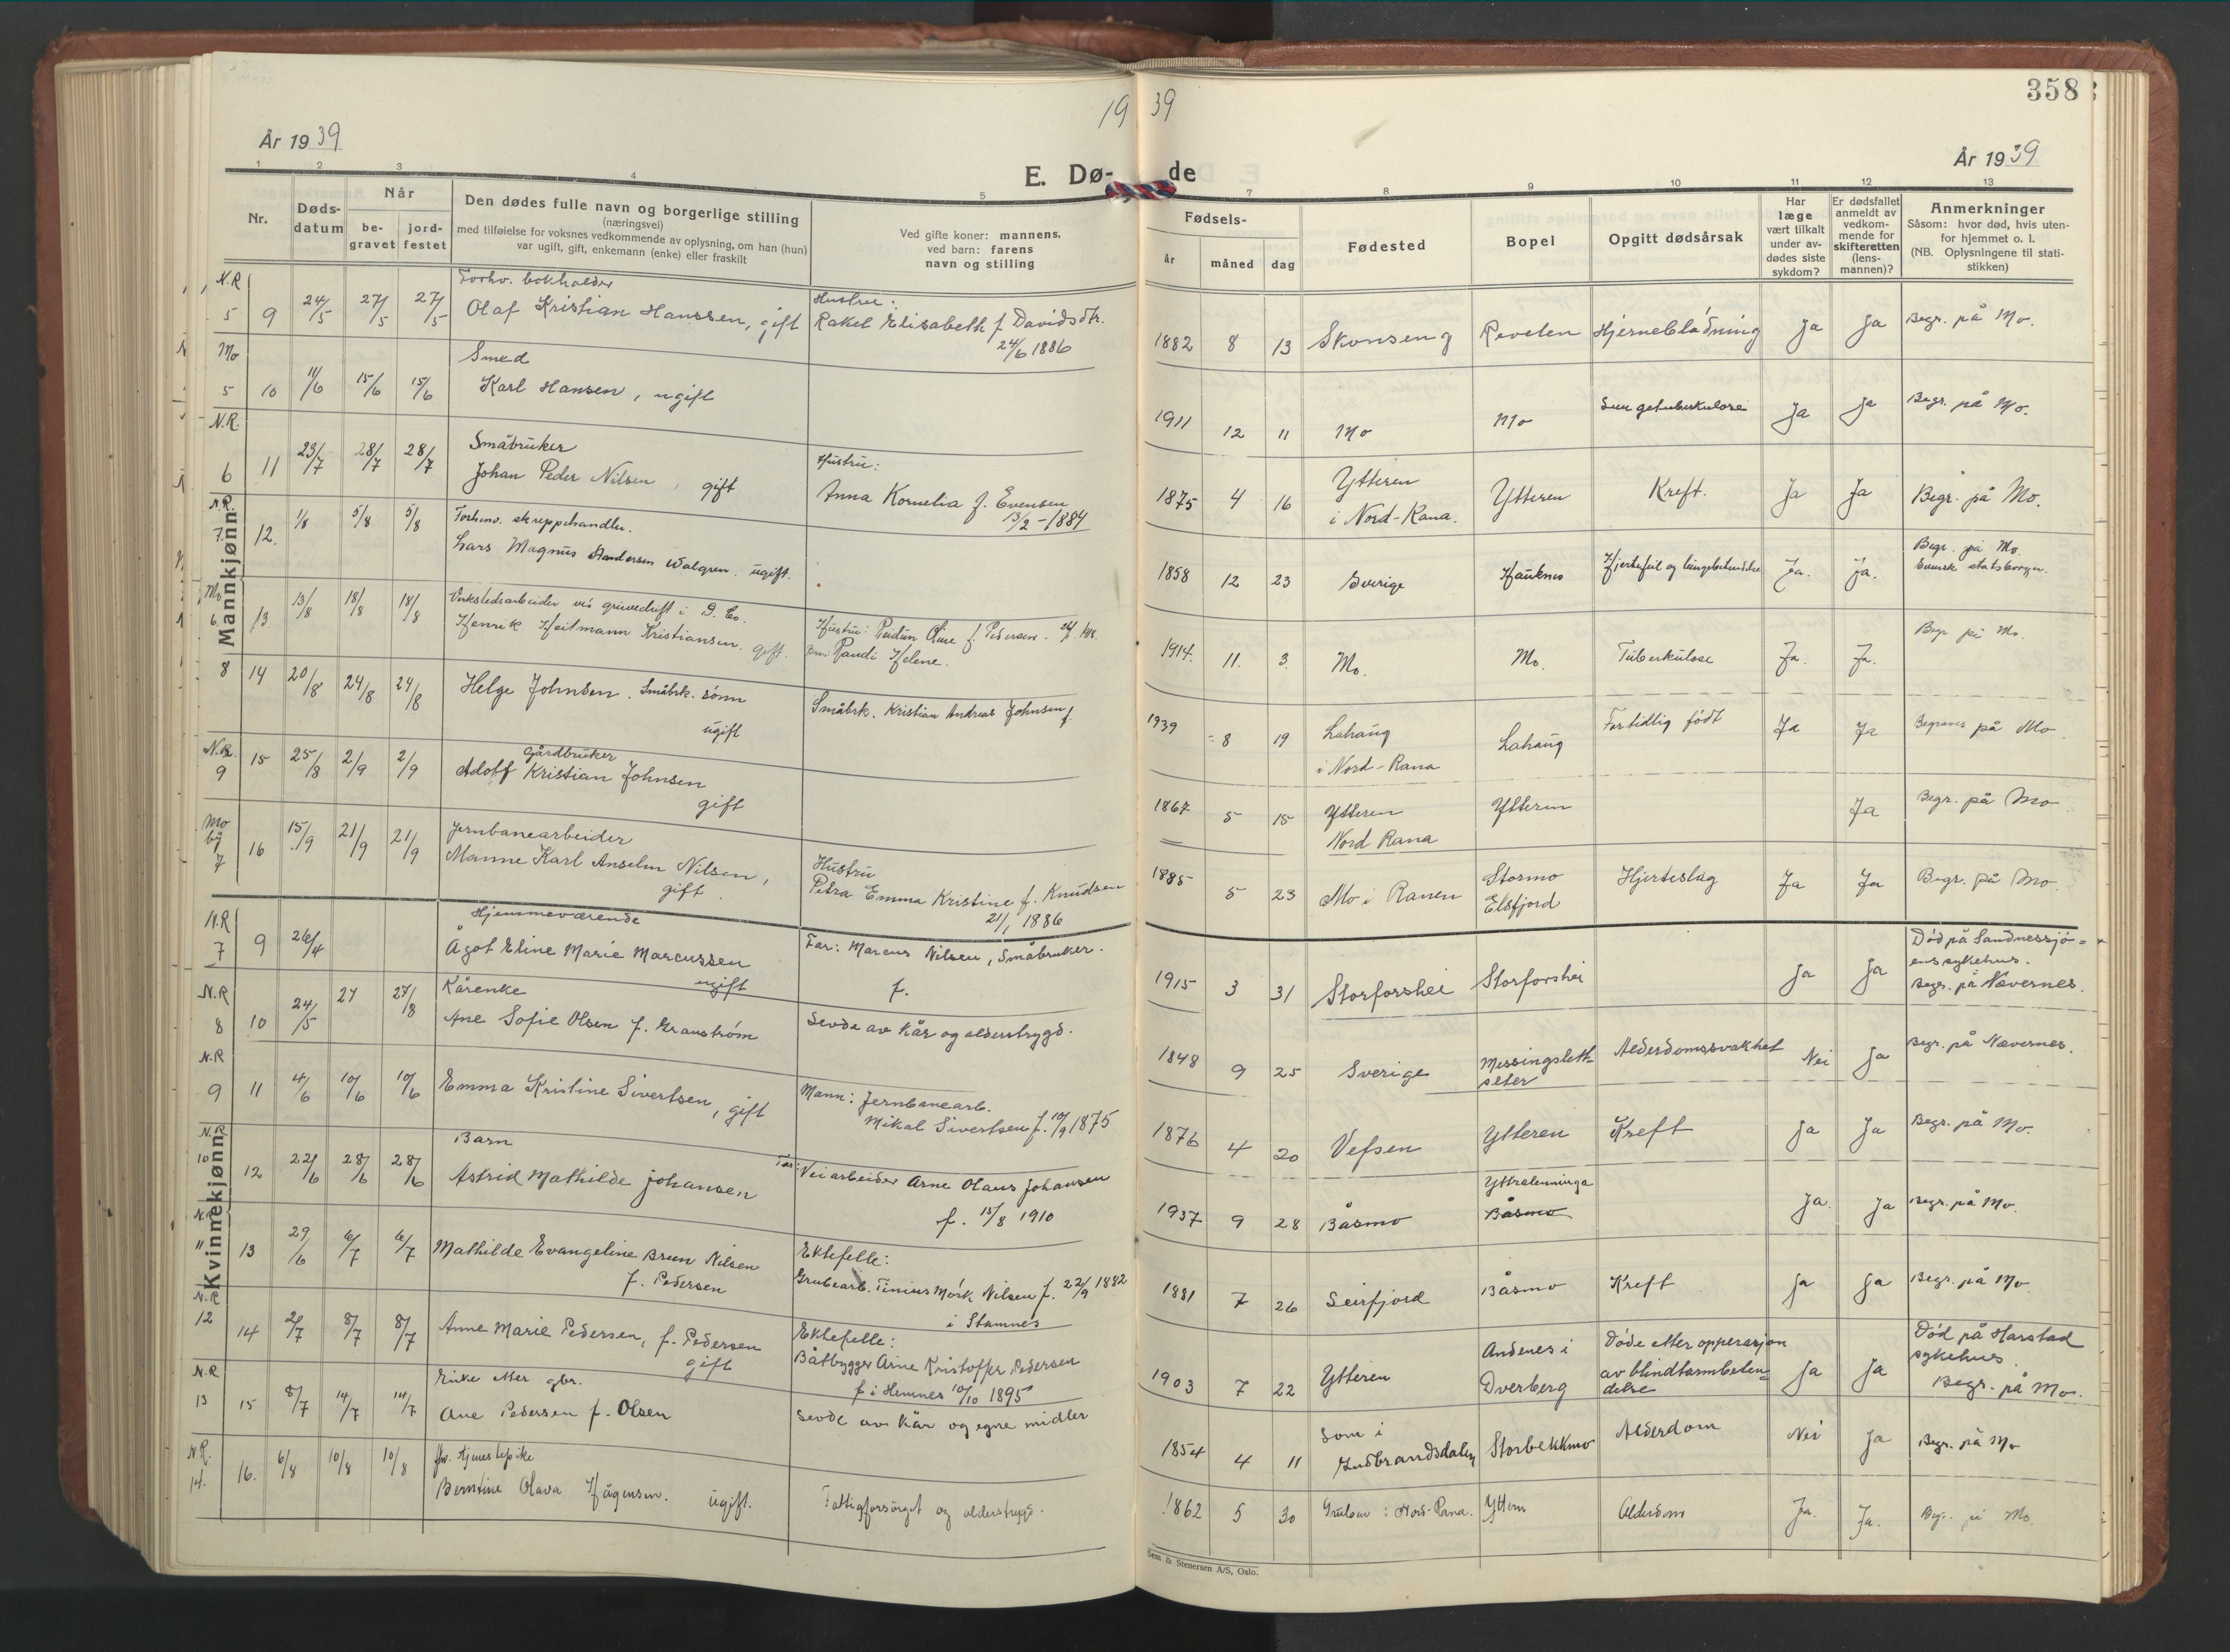 19 39
358
År 1939
E. Dø-
de
År 1939
1 2 3 4 5
7 8 9 10 11 12 13
Nr.
Døds-
datum
Når
be-
gravet
jord-
festet
Den dødes fulle navn og borgerlige stilling
(næringsvei)
med tilføielse for voksnes vedkommende av oplysning, om han (hun)
var ugift, gift, enkemann (enke) eller fraskilt
Ved gifte koner: mannens,
ved barn: farens
navn og stilling
Fødsels-
år
måned
dag
Fødested
Bopel
Opgitt dødsårsak
Har
læge
vært tilkalt
under av-
dødes siste
sykdom?
Er dødsfallet
anmeldt av
vedkom-
mende for
skifteretten
(lens-
mannen)?
Anmerkninger
Såsom: hvor død, hvis uten-
for hjemmet o. l.
(NB. Oplysningene til stati-
stikken)
Mannkjønn
N.R
5 9 24/5 27/5 27/5
Forhv. bokholder
Olaf Kristian Hanssen, gift
Hustru:
Rakel Elisabeth f. Davidsdtr.
24/6 1886
1882 8 13 Skonseng Revelen Hjerneblødning Ja Ja Begr. på Mo.
Mo
5 10 11/6 15/6 15/6
Smed
Karl Hansen, ugift
1911 12 11 Mo Mo Ja Ja Begr. på Mo.
N.R.
6 11 23/7 28/7 28/7
Småbruker
Johan Peder Nilsen, gift
Hustru:
Anna Kornelia f. Evensen
13/2-1884
1875 4 16 Ytteren
i Nord-Rana.
Ytteren Kreft. Ja Ja Begr. på Mo.
N.R.
7. 12. 1/8 5/8 5/8
Forhenv. skreppehandler.
Lars Magnus Andersen Walgren. ugift.
1858 12 23 Sverige Hauknes Hjertefeil og lungebetendelse Ja. Ja.
Begr. på Mo.
Svensk statsborger.
Mo
6. 13. 13/8 18/8 18/8
Verkstedsarbeider ves gruvedrift i D. Co.
Henrik Heitmann Kristiansen. gift.
Hustru: f. Pedersen.
Barn: Randi Helene.
1914. 11. 3. Mo. Mo. Tuberkulose Ja. Ja. Begr på Mo.
8 14 20/8 24/8 24/8
Helge Johnsen. Småbrk. sønn
ugift
Småbrk. Kristian Andreas Johnsen f.
1939 8 19 Lahaug
i Nord-Rana
Lahaug Fortidlig født Ja Ja Begraves på Mo.
N.R.
9 15 25/8 2/9 2/9
Gårdbruker
Adolf Kristian Johnsen
gift
1867 5 15 Ytteren
Nord Rana
Ytteren Ja Begr. på Mo
Mo
by
7 16 15/9 21/9 21/9
Jernbanearbeider
Manne Karl Anselm Nilsen,
gift.
Hustru
Petra Emma Kristine f. Knudsen
21/1 1886
1885 5 23 Mo i Ranen Stormo
Elsfjord
Hjerteslag Ja Ja Begr. på Mo.
Kvinnekjønn
N.R
7 9 26/4
Hjemmeværende
Ågot Eline Marie Marcussen
ugift
Far: Marcus Nilsen, Småbruker.
f.
1915 3 31 Storforshei Storforshei Ja Ja
Død på Sandnessjø=
ens sykehus.
Begr. på Nævernes.
N.R
8 10 24/5 27 27/18
Kårenke
Ane Sofie Olsen f. Granstrøm
Levde av kår og alderstrygd.
1848 9 25 Sverige Messingslett-
seter
Alderdomssvakhet Nei Ja Begr. på Nævernes.
N.R
9 11 4/6 10/6 10/6
Emma Kristine Sivertsen, gift
Mann: Jernbanearb.
Mikal Sivertsen f. 10/9 1875
1876 4 20 Vefsen Ytteren Kreft Ja Ja Begr. på Mo.
N.R
10 12 22/6 28/6 28/6
Barn
Astrid Mathilde Johansen
Far: Veiarbeider Arne Olaus Johansen
f. 15/8 1910
1937 9 28 Båsmo
Båsmo
Ja. Ja Begr. på Mo.
N.R
11 13 29/6 6/7 6/7
Mathilde Evangeline Bruun Nilsen
f. Pedersen
Ektefelle:
Grubearb. Tinius Mørk Nilsen f. 22/9 1882
i Stamnes
1881 7 26 Leirfjord Båsmo Kreft Ja Ja Begr. på Mo
N.R
12 14 2/7 8/7 8/7
Anne Marie Pedersen, f. Pedersen
gift
Ektefelle:
Båtbygger Arne Kristoffer Pedersen
f i Hemnes 10/10 1895
1903 7 22 Ytteren Andenes i
Dverberg
Døde etter opperasjon
av blindtarmbeten=
delse
Ja Ja
Død på Harstad
sykehus.
Begr. på Mo.
N.R
13 15 8/7 14/7 14/7
Enke etter gbr.
Ane Pedersen f. Olsen
Levde av kår og egne midler
1854 4 11 Lom i
Gudbrandsdalen
Storbekkmo Alderdom Nei Ja Begr. på Mo
N.R.
14. 16. 6/8 10/8 10/8
fhv. tjenestepike
Berntine Olava Hågensen. ugift.
Fattigforsørget og alderstrygd.
1862 5 30 Nord-Rana. Yttern Alderdom Ja. Ja. Begr. på Mo.
Sem & Stenersen A/S, Oslo.